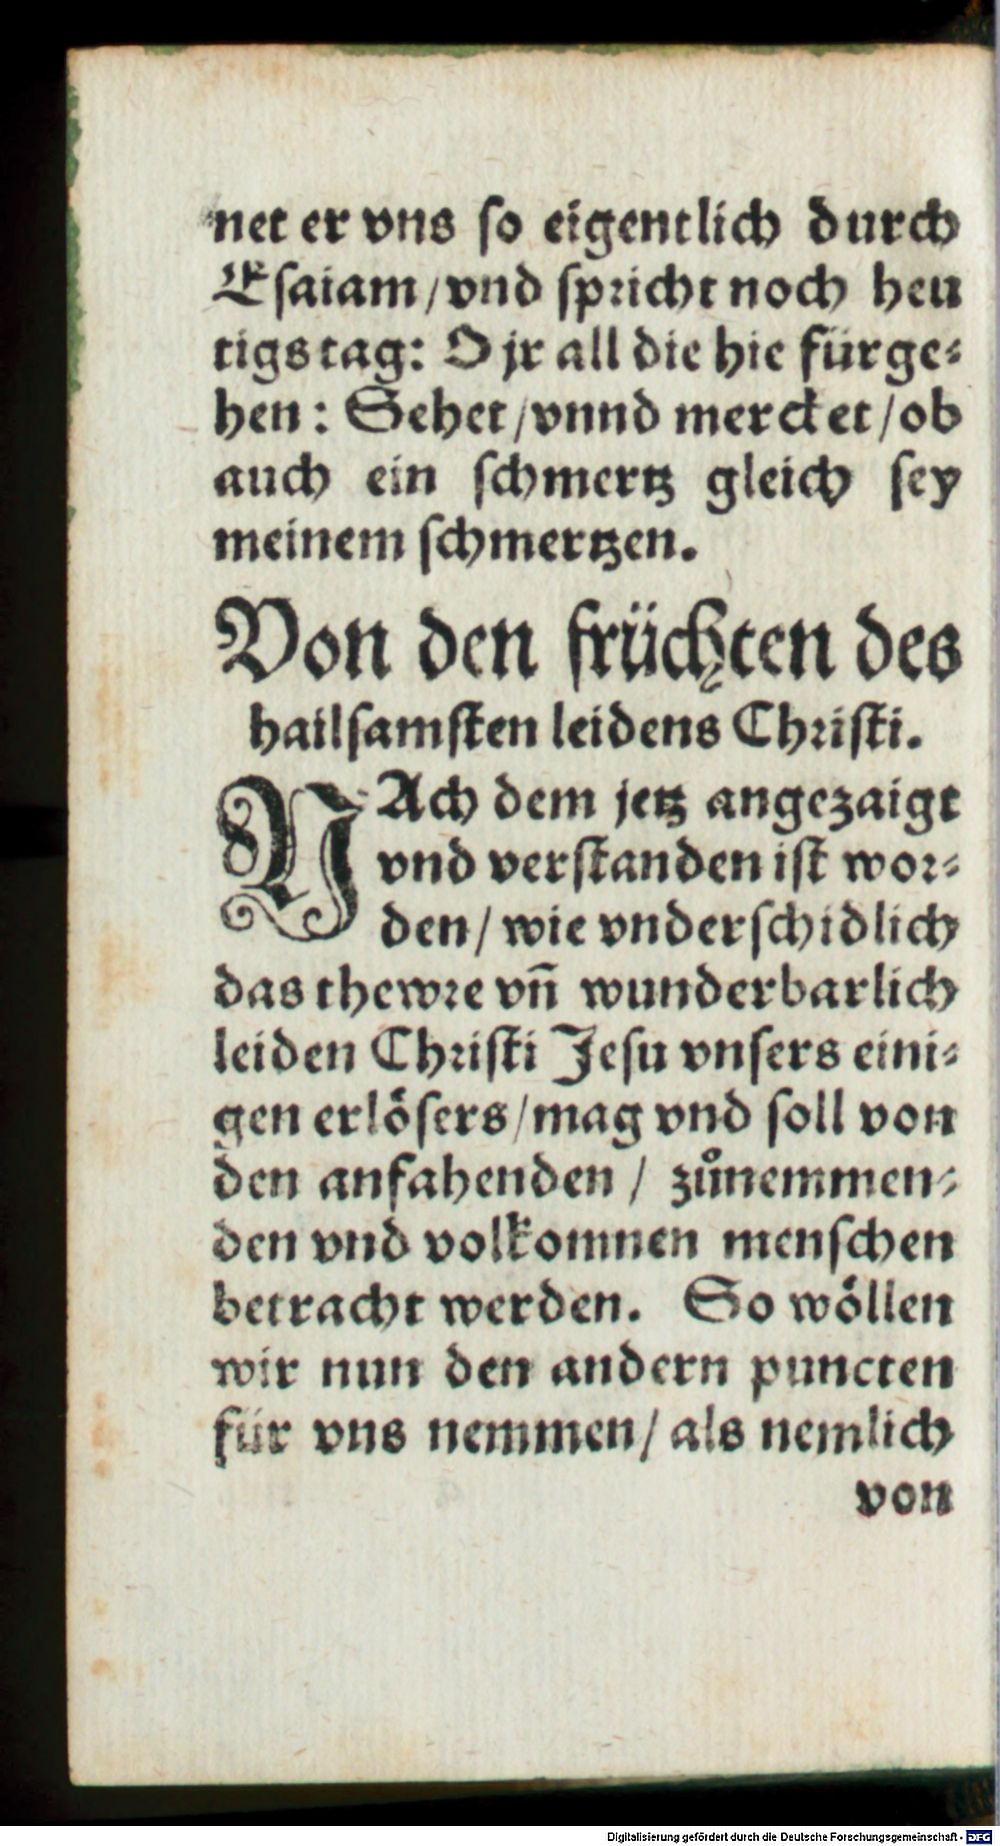 net er vns so eigentlich durch
Esaiam/vnd spricht noch heu
tigs tag: O jr all die hie fürge-
hen: Sehet/vnnd mercket/ob
auch ein schmertz gleich sey
meinem schmertzen.
Von den früchten des
hailsamsten leidens Christi.
NAch dem jetz angezaigt
vnd verstanden ist wor-
den/wie vnderschidlich
das thewre vñ wunderbarlich
leiden Christi Jesu vnsers eini-
gen erlösers/mag vnd soll von
den anfahenden / zůnemmen-
den vnd volkomnen menschen
betracht werden. So wöllen
wir nun den andern puncten
für vns nemmen/als nemlich
von
Digitalisierung gefördert durch die Deutsche Forschungsgemeinschaft - DFG